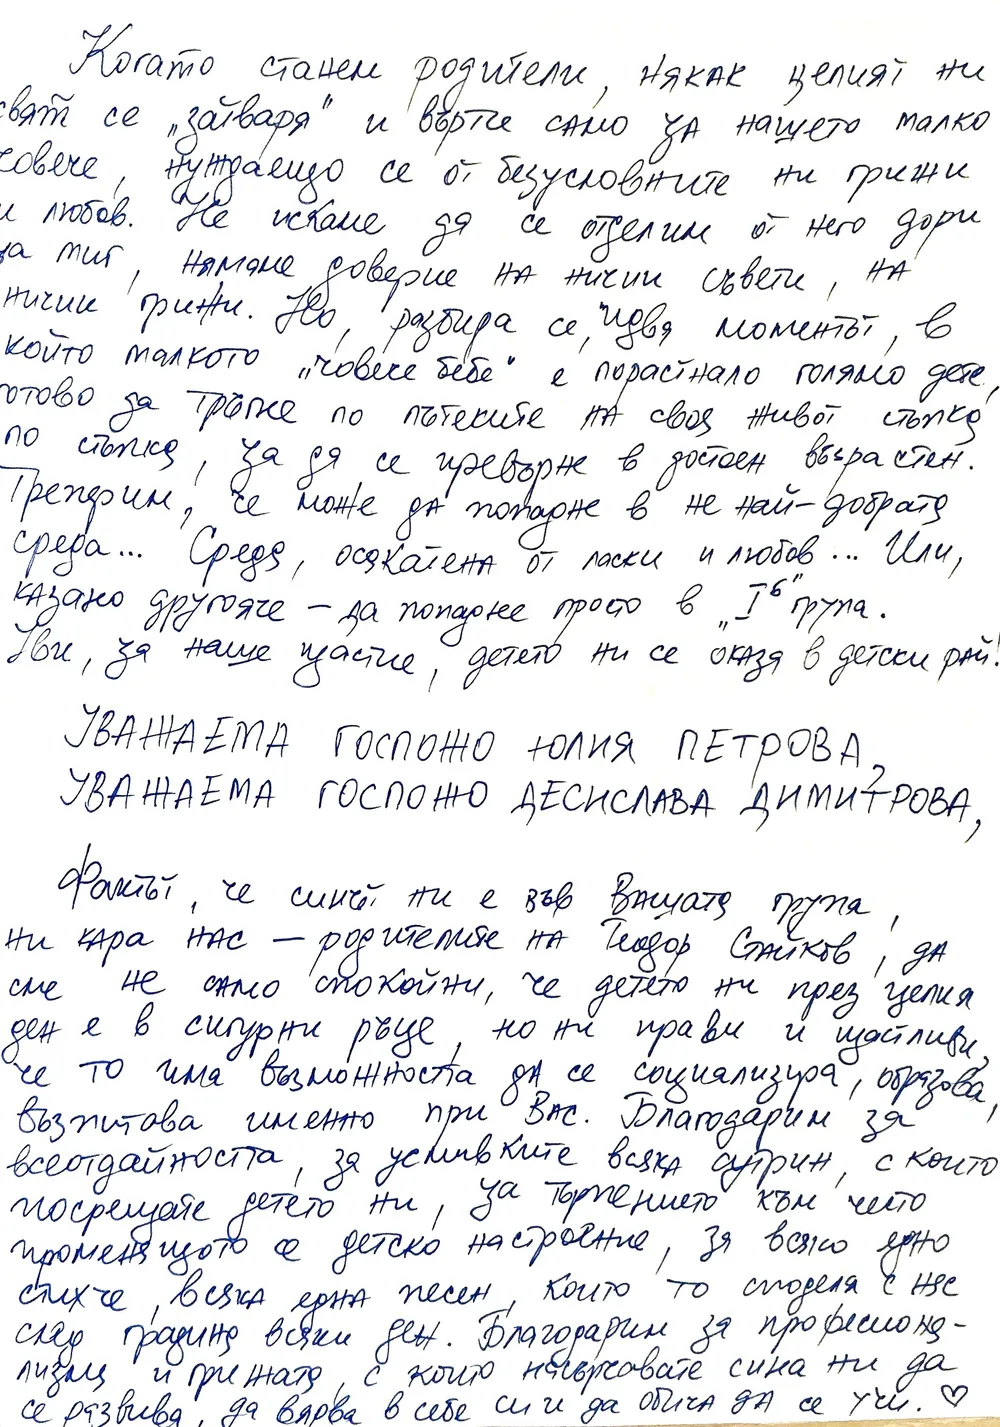 Когато станем родители, някак целият ни
свят се „затваря" и върти само за нашето малко
човече, нуждаещо се от безусловните ни грижи
и любов. Не искаме да се отделим от него дори
за миг, нямаме доверие на ничии съвети, на
ничии грижи. Но, разбира се, идва моментът, в
който малкото „човече бебе" е пораснало голямо дете,
готово за тръгне по пътеките на своя живот стъпка
по стъпка, за да се превърне в достоен възрастен.
Треперим, че може да попадне в не най-добрата
среда... Среда, осакатена от ласки и любов... Или,
казано другояче – да попадне просто в „I б" група.
Уви, за наше щастие, детето ни се оказа в детски рай!
УВАЖАЕМА ГОСПОЖО ЮЛИЯ ПЕТРОВА,
УВАЖАЕМА ГОСПОЖО ДЕСИСЛАВА ДИМИТРОВА,
Фактът, че синът ни е във Вашата група,
ни кара нас – родителите на Теодор Стайков, да
сме не само спокойни, че детето ни през целия
ден е в сигурни ръце, но ни прави и щастливи,
че то има възможността да се социализира, образова,
възпитава именно при Вас. Благодарим за
всеотдайността, за усмивките всяка сутрин, с които
посрещате детето ни, за търпението към често
променящото се детско настроение, за всяко едно
стихче, всяка една песен, които то споделя с нас
след градина всеки ден. Благодарим за професиона-
лизма и грижата, с които насърчавате сина ни да
се развива, да вярва в себе си и да обича да се учи. ♡